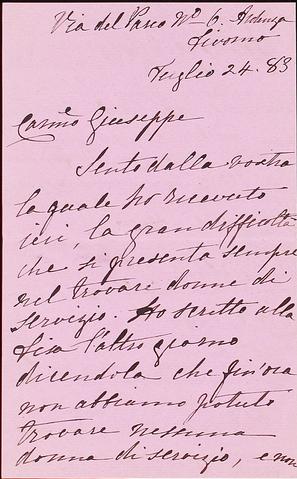 Via del Parco No 6. Ardenza
Livorno
Luglio 24. 83
Carmo Giuseppe
Sento dalla vostra
la quale ho ricevuto
ieri, la gran difficolta
che si presenta sempre
nel trovare donne di
servizio. Ho scritto alla
Lisa l'altro giorno
dicendola che fin'ora
non abbiamo potuto
trovare nessuna
donna di servizio, e non